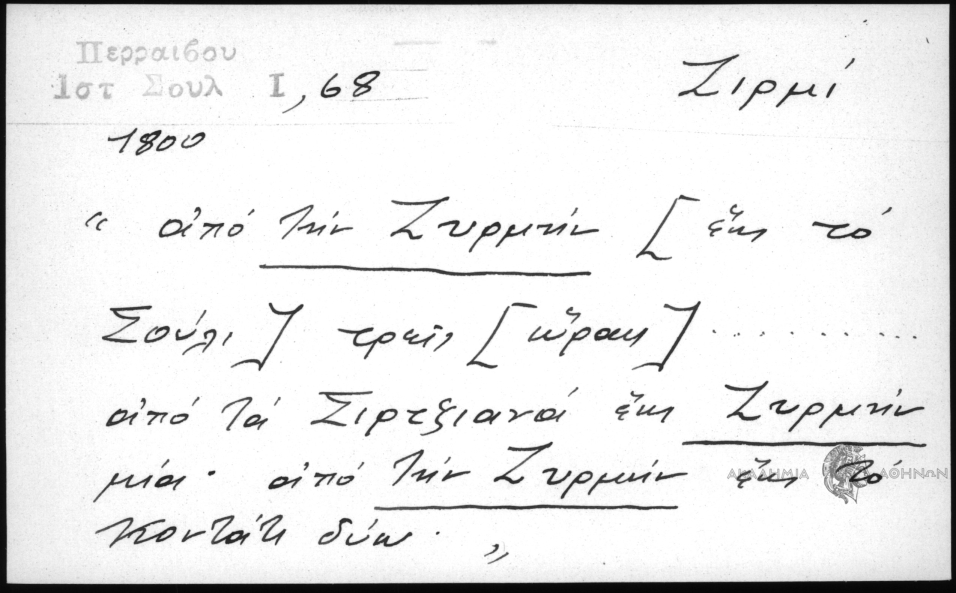 Περραιβου
Ιστ Σουλ Ι, 68
Ζιρμί
1800
“ ἀπό τήν Ζυρμήν [ ἕως τό
Σούλι ] τρεῖς [ ὥρας ] ..........
ἀπό τά Σιρτζιανά ἕως Ζυρμήν
μία · ἀπό τήν Ζυρμήν ἕως τό
Κοντάτι δύω · „
ΑΚΑΔΗΜΙΑ ΑΘΗΝΩΝ